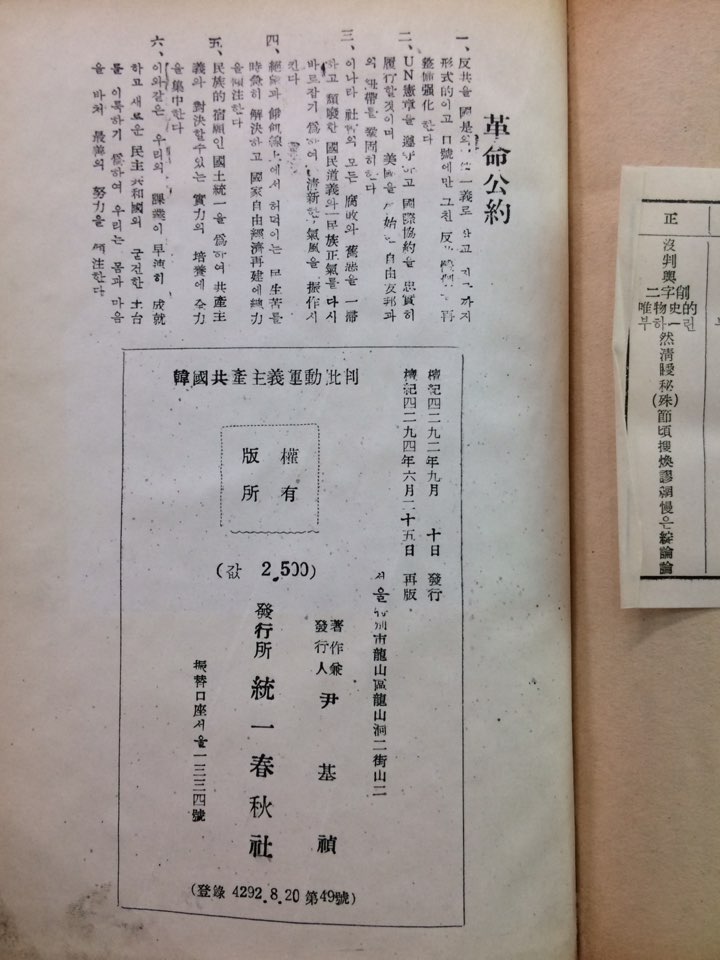 革命公約
一、反共을 國是의 第一義로 삼고 지금까지
形式的이고 口號에만 그친 反共態勢를 再
整備强化 한다
二、UN憲章을 遵守하고 國際協約을 忠實히
履行할것이며 美國을 비롯한 自由友邦과
의 紐帶를 鞏固히한다
三、이나라 社會의 모든 腐敗와 舊惡을 一掃
하고 頹廢한 國民道義와 民族正氣를 다시
바로잡기 爲하여 淸新한 氣風을 振作시
킨다
四、絕望과 飢餓線上에서 허덕이는 民生苦를
時急히 解決하고 國家自由經濟再建에 總力
을 傾注한다
五、民族的 宿願인 國土統一을 爲하여 共產主
義와 對決할수있는 實力의 培養에 全力
을 集中한다
六、이와같은 우리의 課業이 早速히 成就
하고 새로운 民主共和國의 굳건한 土台
를 이룩하기 爲하여 우리는 몸과 마음
을 바쳐 最善의 努力을 傾注한다
韓國共產主義運動批判
檀紀四二九二年九月 十日 發行
檀紀四二九四年六月二十五日 再版
版權
所有
(값 2,500)
서울特別市龍山區龍山洞二街山二
著作兼
發行人 尹基禎
發行所 統一春秋社
振替口座서울一三三四號
(登錄 4292.8.20 第49號)
正
沒判與
二字削
唯物史的
부하一린
然清
秘(殊)節頃
煥謬
慢은
論論